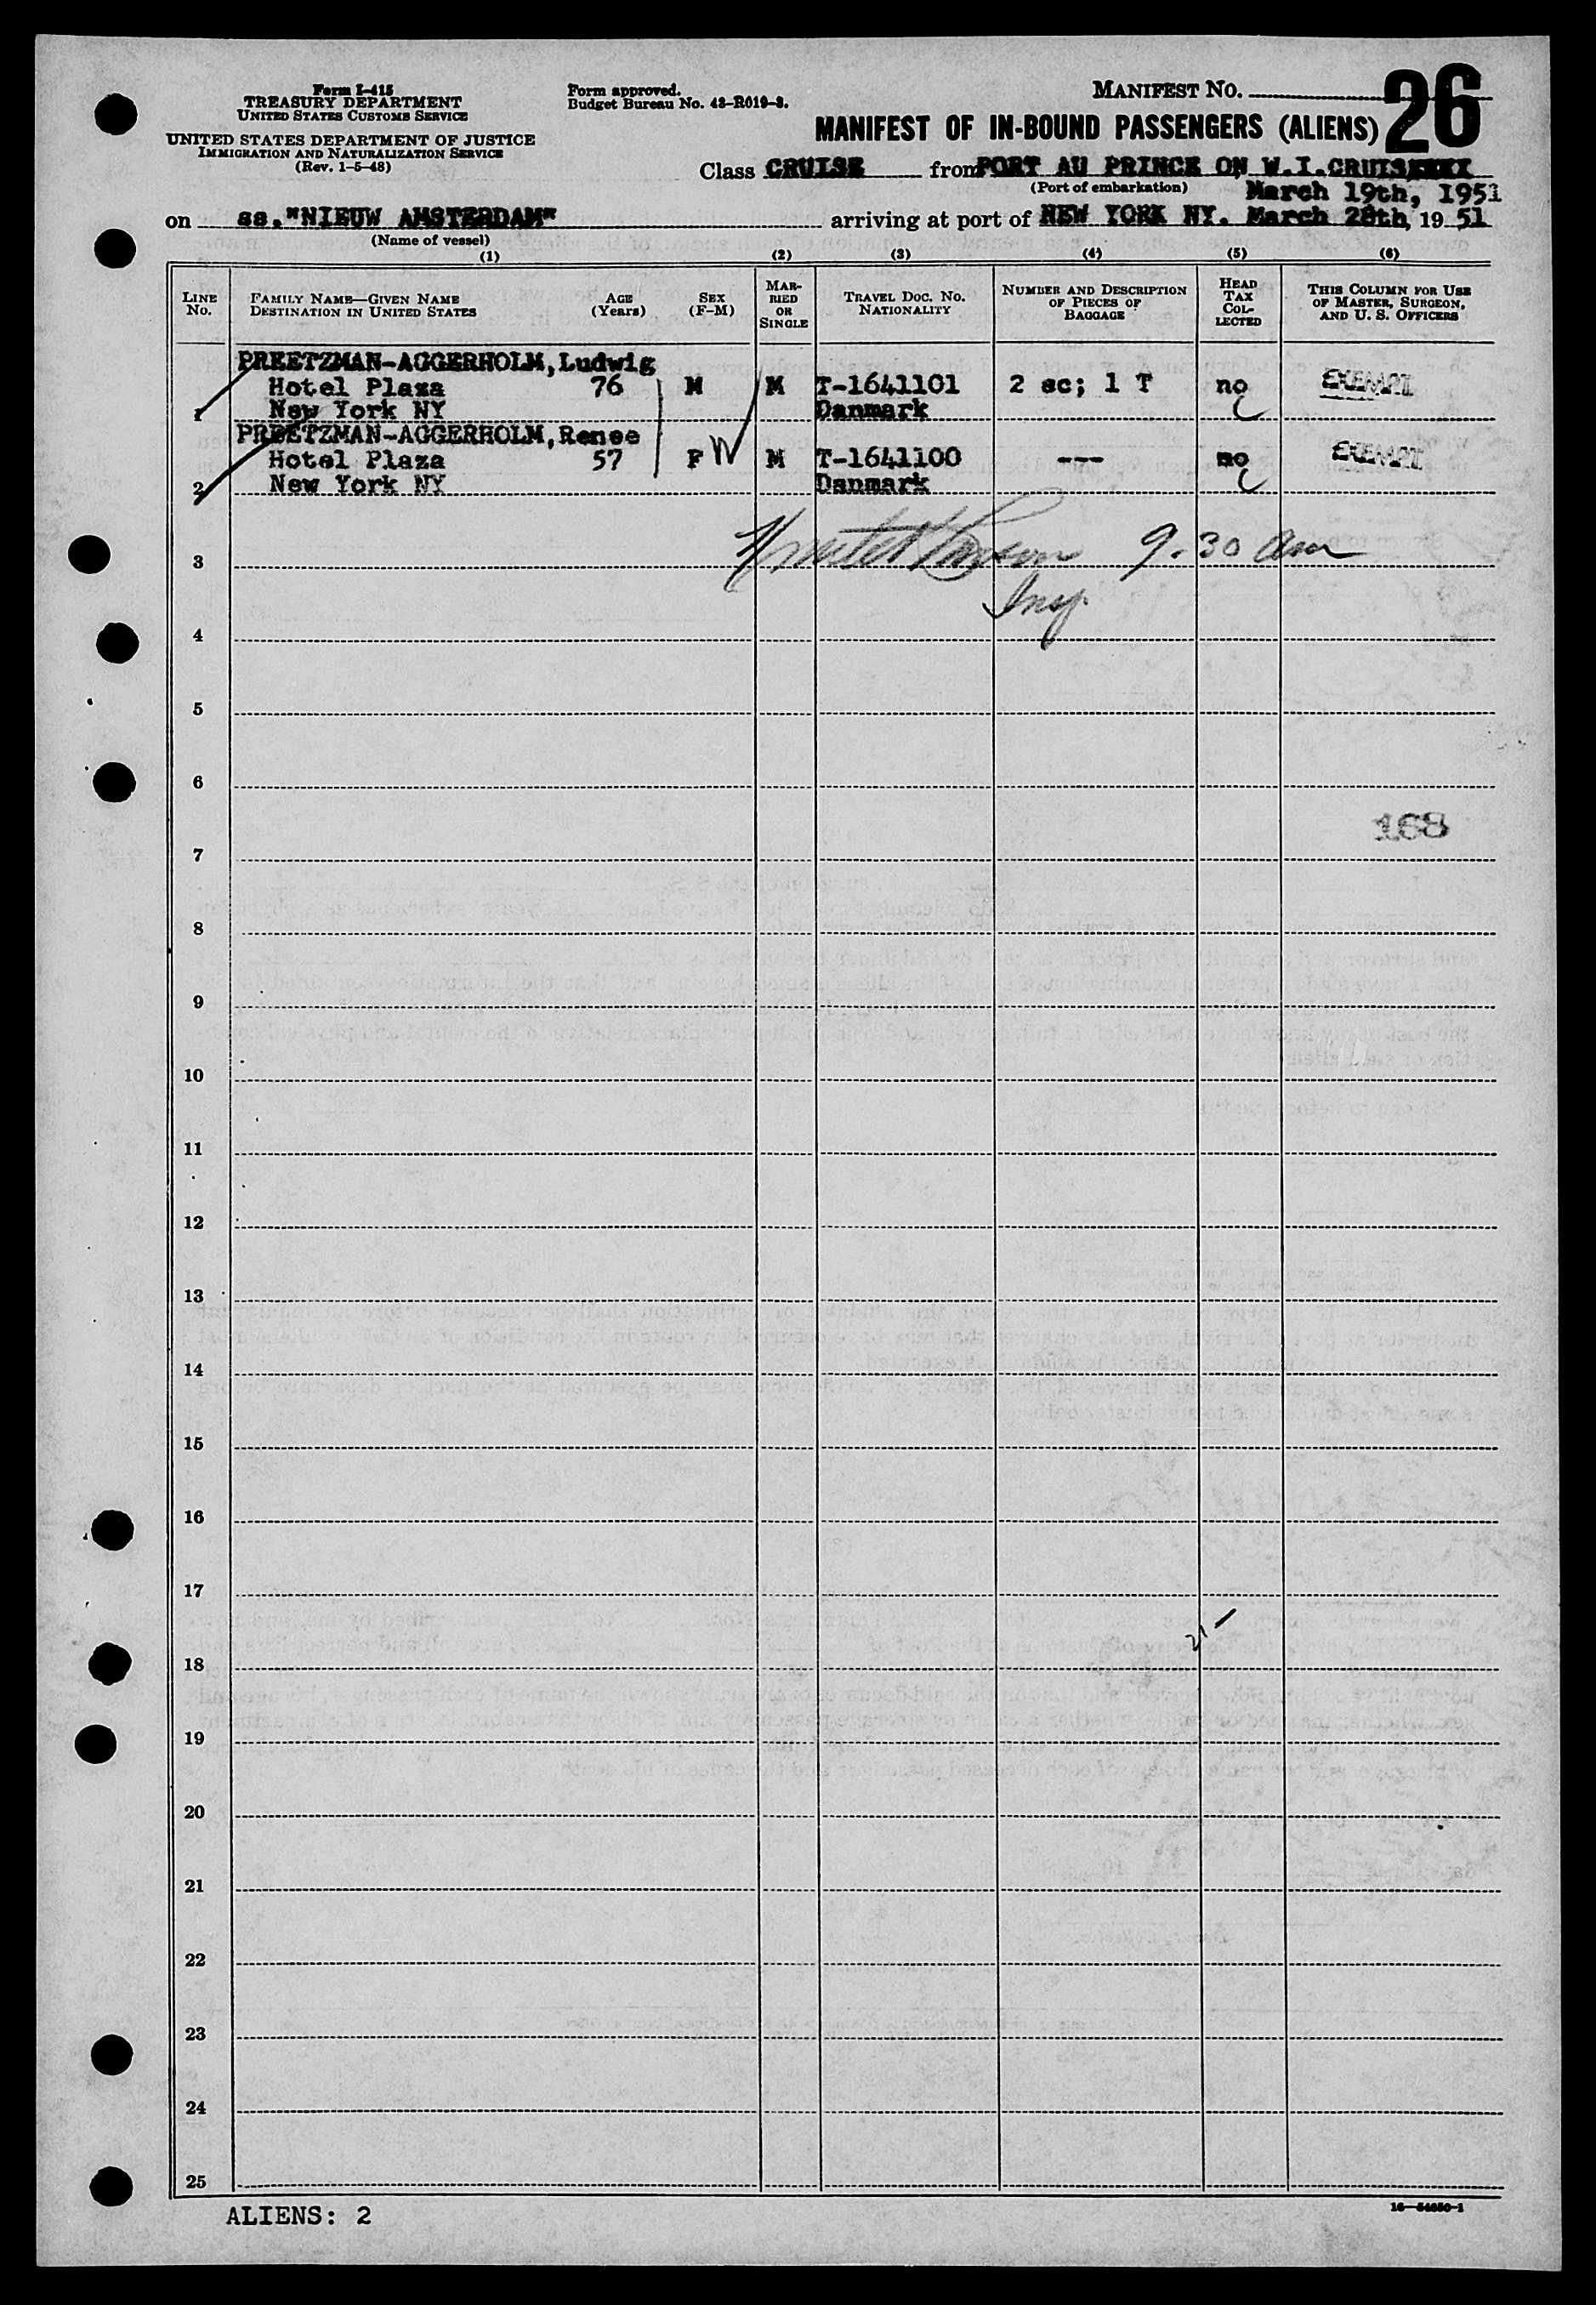 Form I-415
TREASURY DEPARTMENT
UNITED STATES CUSTOMS SERVICE
UNITED STATES DEPARTMENT OF JUSTICE
IMMIGRATION AND NATURALIZATION SERVICE
(Rev. 1-5-48)
Form approved.
Budget Bureau No. 43-R019-3.
MANIFEST NO. 26
MANIFEST OF IN-BOUND PASSENGERS (ALIENS)
Class CRUISE from PORT AU PRINCE ON W.I.CRUISE
(Port of embarkation) March 19th, 1951
on ss."NIEUW AMSTERDAM" arriving at port of NEW YORK NY. March 28th, 19 51
(Name of vessel)
(1) (2) (3) (4) (5) (6)
LINE No.
FAMILY NAME—GIVEN NAME
DESTINATION IN UNITED STATES
AGE (Years)
SEX (F-M)
MARRIED OR SINGLE
TRAVEL DOC. NO.
NATIONALITY
NUMBER AND DESCRIPTION OF PIECES OF BAGGAGE
HEAD TAX COLLECTED
THIS COLUMN FOR USE OF MASTER, SURGEON, AND U. S. OFFICERS
PREETZMAN-AGGERHOLM, Ludwig
Hotel Plaza 76 M M T-1641101 2 sc; 1 T no EXEMPT
1 New York NY Danmark
PREETZMAN-AGGERHOLM, Renee
Hotel Plaza 57 F W M T-1641100 --- no EXEMPT
2 New York NY Danmark
9.30 am
3
Insp.
4
5
6
168
7
8
9
10
11
12
13
14
15
16
17
21
18
19
20
21
22
23
24
25
ALIENS: 2
16—54650-1